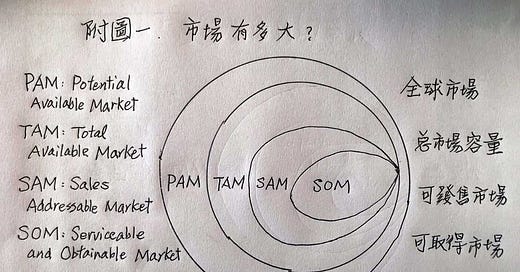 附圖一. 市場有多大?
PAM: Potential
Available Market
TAM: Total
Available Market
SAM: Sales
Addressable Market
SOM: Serviceable
and Obtainable Market
PAM
TAM
SAM
SOM
全球市場
总市場容量
可發售市場
可取得市場